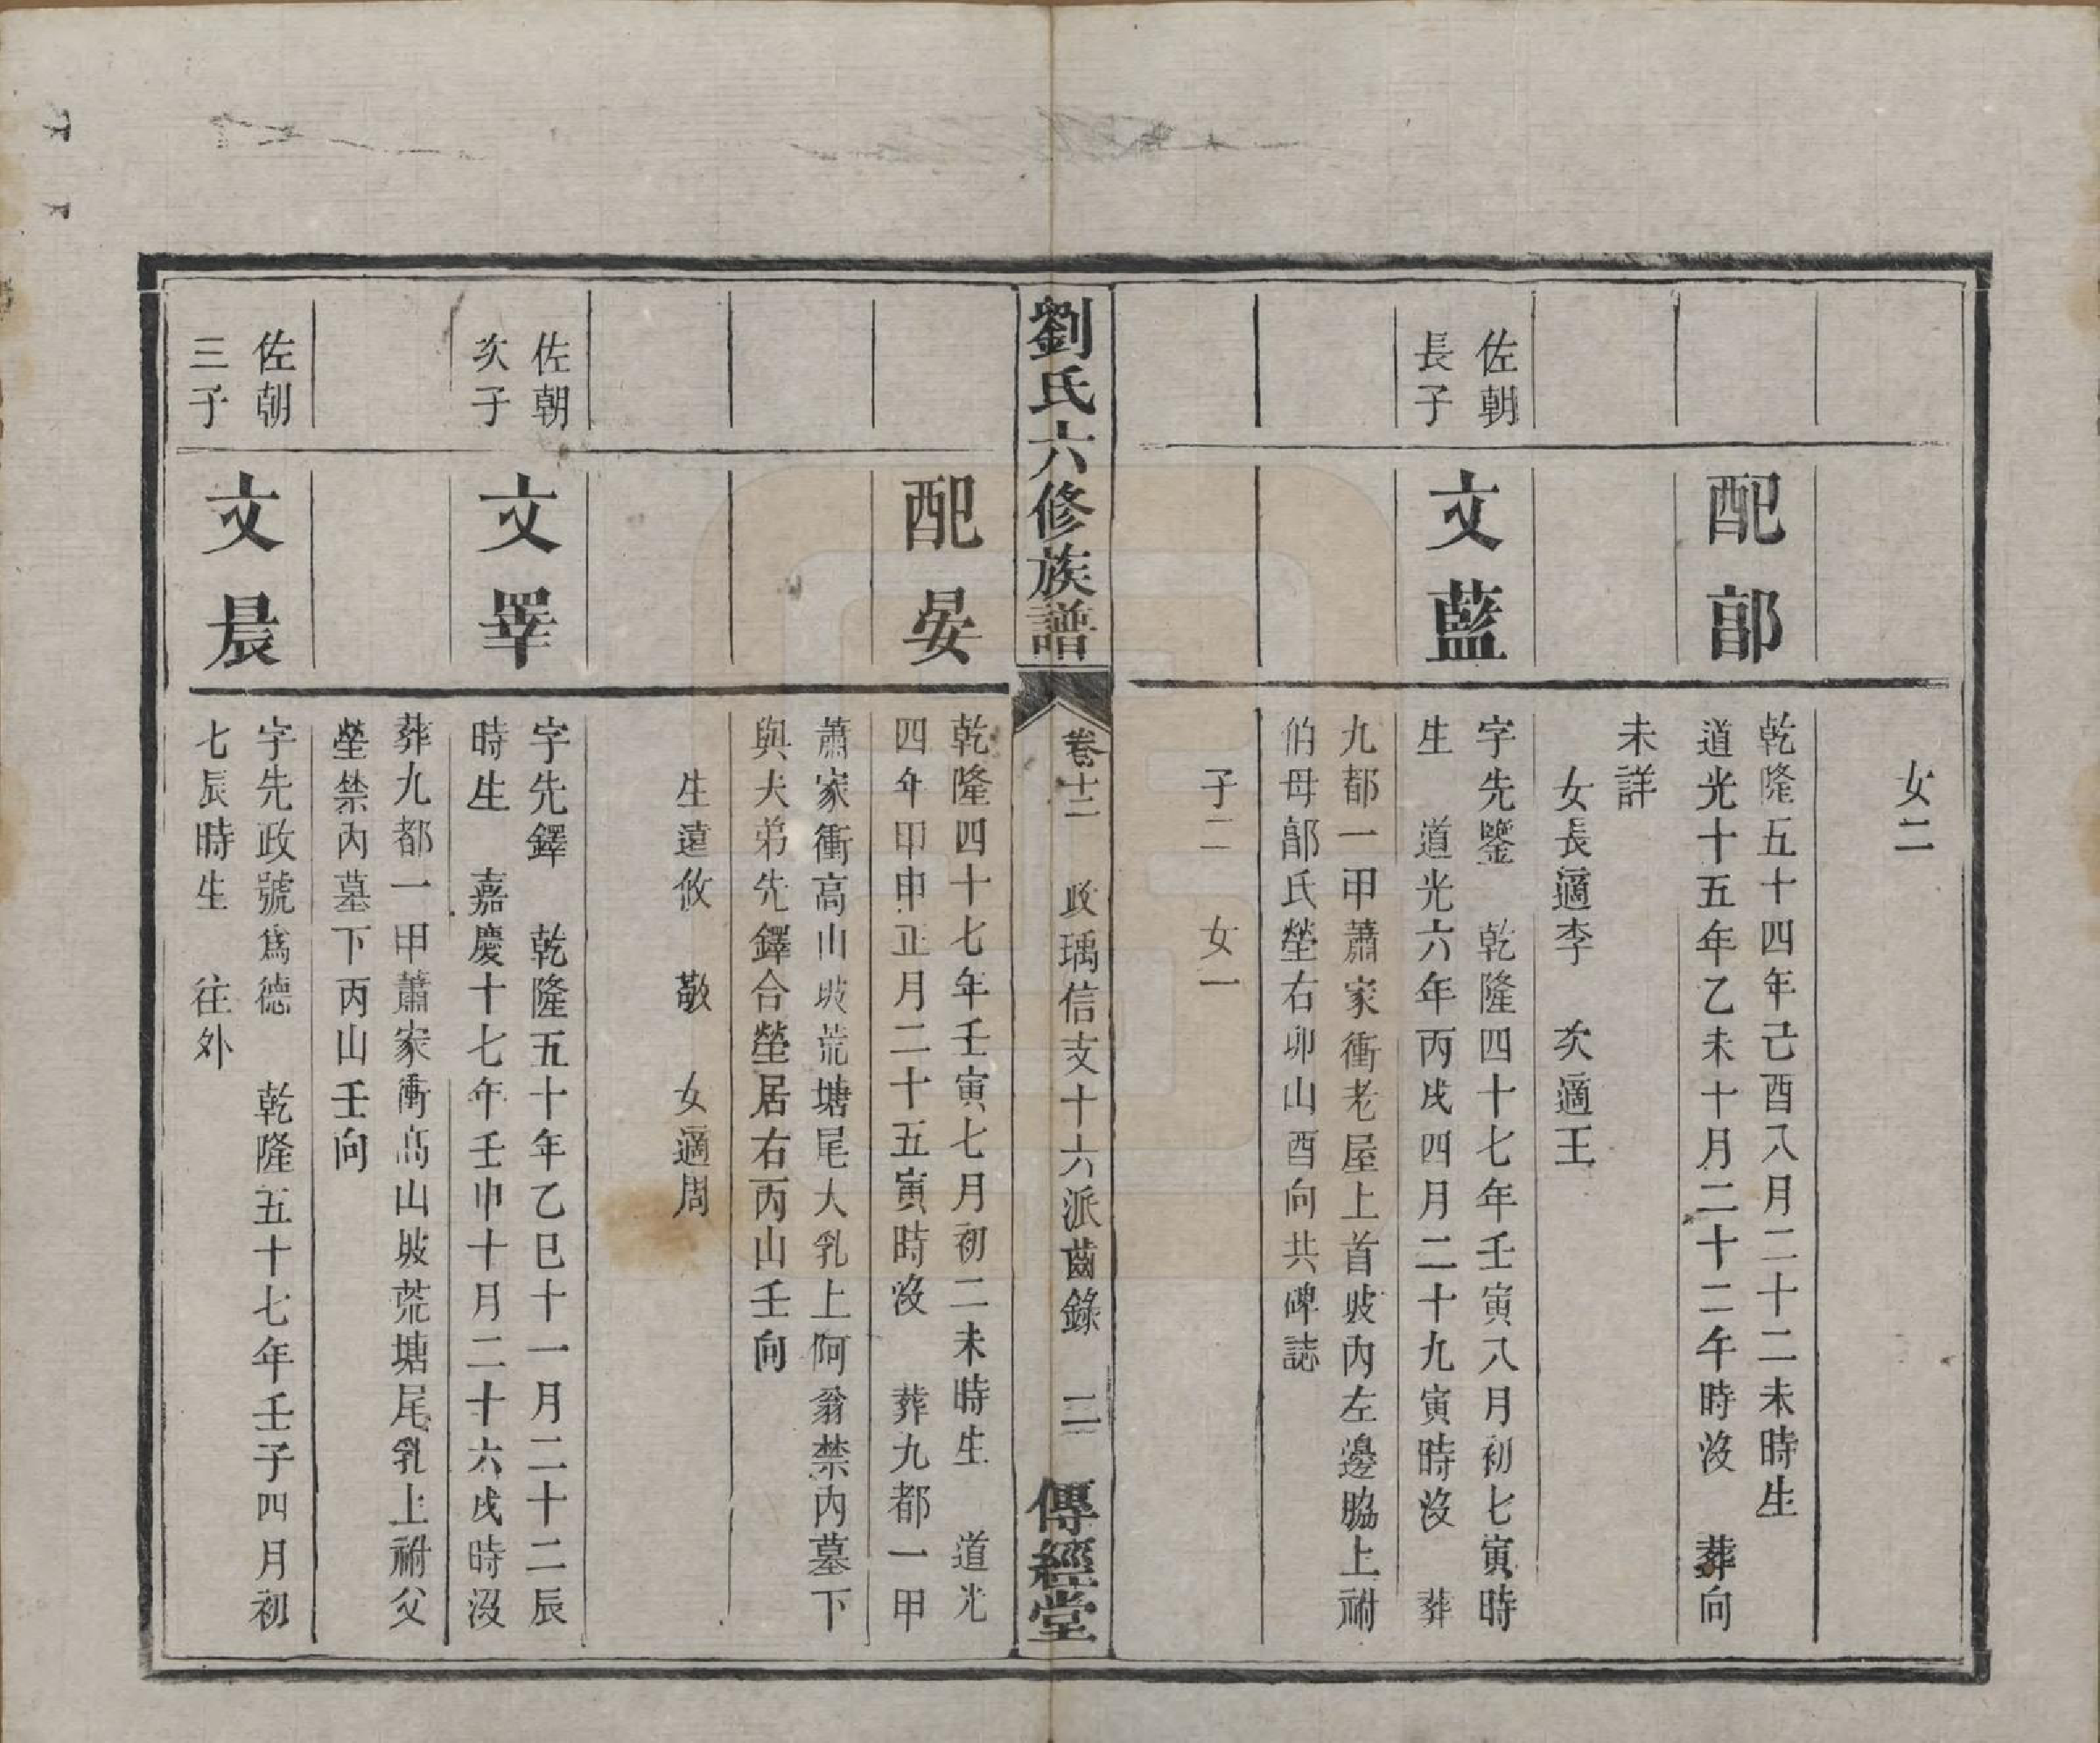 女二
配郋
乾隆五十四年己酉八月二十二未時生
道光十五年乙未十月二十二午時沒　葬向
未詳
女長適李　次適王
佐朝
長子
文藍
字先鑒　乾隆四十七年壬寅八月初七寅時
生　道光六年丙戌四月二十九寅時沒　葬
九都一甲蕭家衝老屋上首坡內左邊脇上祔
伯母郋氏塋右卯山酉向共碑誌
子二　女一
劉氏六修族譜
卷十二　政瑀信支十六派齒錄　二
傳經堂
配晏
乾隆四十七年壬寅七月初二未時生　道光
四年甲申正月二十五寅時沒　葬九都一甲
蕭家衝高山坡荒塘尾大乳上阿翁禁內墓下
與夫弟先鐸合塋居右丙山壬向
生遠攸　敬　女適周
佐朝
次子
文睪
字先鐸　乾隆五十年乙巳十一月二十二辰
時生　嘉慶十七年壬申十月二十六戌時沒
葬九都一甲蕭家衝高山坡荒塘尾乳上祔父
塋禁內墓下丙山壬向
佐朝
三子
文晨
字先政號為德　乾隆五十七年壬子四月初
七辰時生　往外